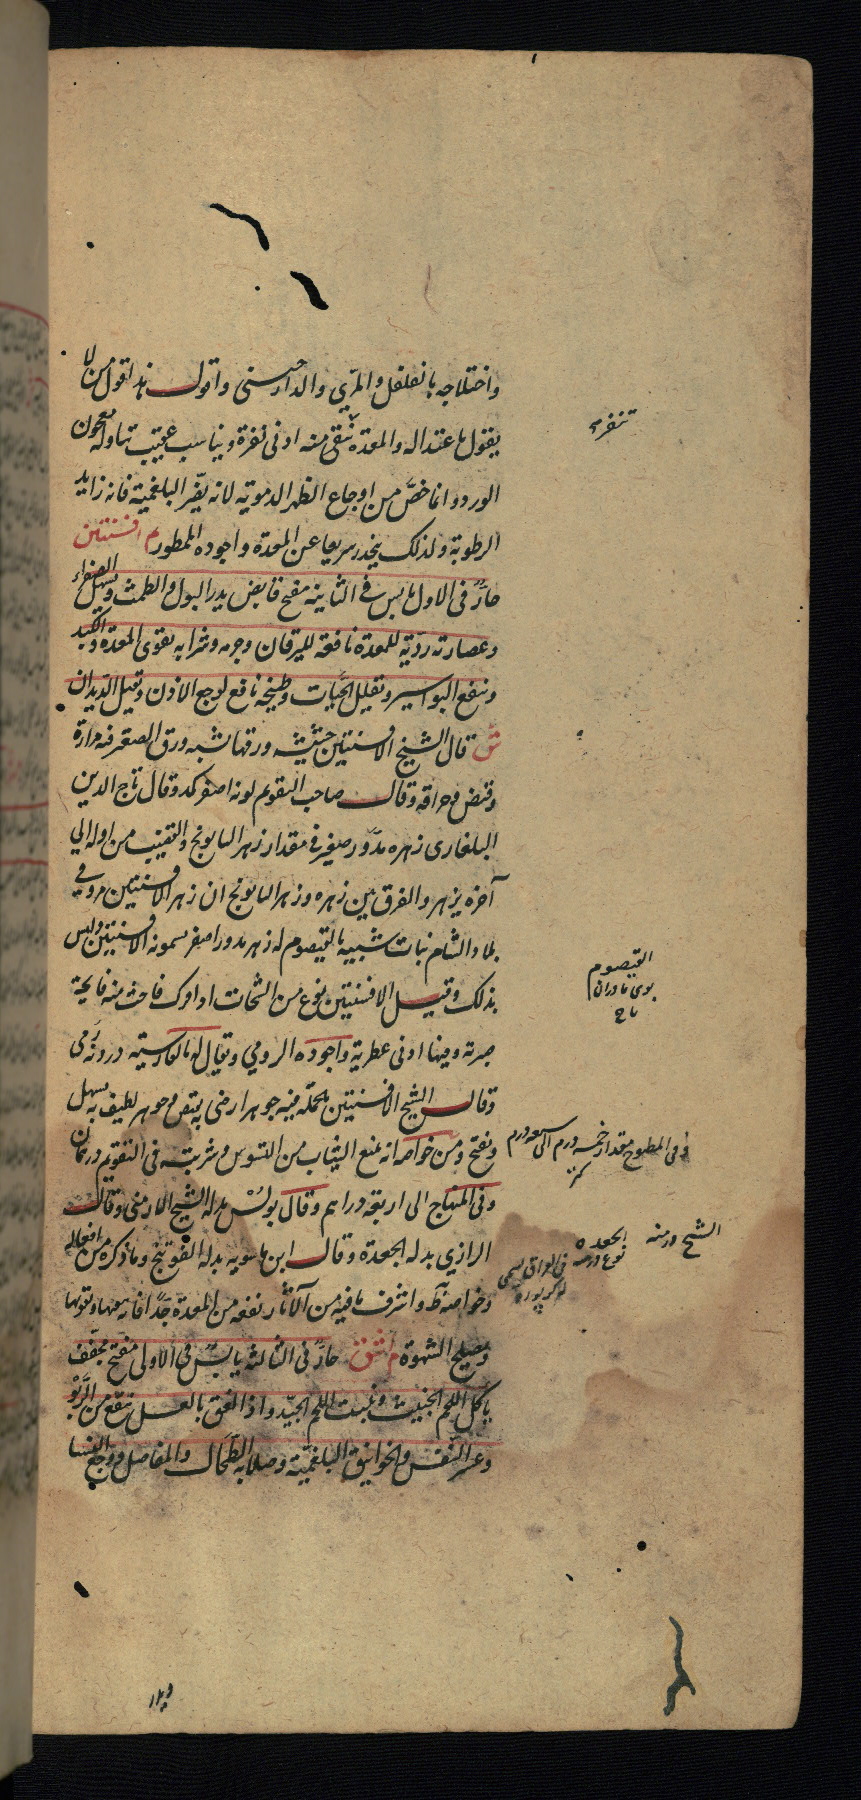 واختلاجه بالفلفل والمرّي والدارصيني واقول هذا قول من لا
يقول باعتداله والمعدة تبقى منه ادنى نفرة ويناسب عقيب تناوله معجون
الورد وانما خصّ من اوجاع الظهر الدموية لانه يضرّ البلغمية فانه زايد
الرطوبة ولذلك ينحدر سريعا عن المعدة واجوده الممطور م افسنتين
حارّ فى الاول يابس فى الثانية مفتح قابض يدر البول والطمث ويسهل الصفراء
وعصارته رديّة للمعدة نافعة لليرقان وجرمه وشرابه يقوى المعدة والكبد
وينفع البواسير والحميات وطبيخه نافع لوجع الاذن ويقتل الديدان
ش قال الشيخ الافسنتين حشيشة ورقها يشبه ورق الصعتر فيه مرارة
وقبض وحرافة وقال صاحب التقويم لونه اصفر كمد وقال تاج الدين
البلغارى زهره مدوّر صغير فى مقدار زهر البابونج والقضيب من اوله الى
آخره يزهر والفرق بين زهره وزهر البابونج ان زهر الافسنتين وفي
بلاد الشام نبات شبيه بالقيصوم له زهر مدور اصفر يسمونه الافسنتين وليس
بذلك وقيل الافسنتين نوع من الشيحات اذا فرك فاحت منه فايحة
صبرية ومنها ادنى عطرية واجوده الرومي ويقال له بالفارسية
وقال الشيخ الافسنتين بالجملة فيه جوهر ارضى به يقبض وجوهر لطيف به يسهل
ويفتح ومن خواصه انه يمنع الثياب من التسوس وشربته فى التقويم درهمان
وفى المنهاج الى اربعة دراهم وقال بولس بدله الشيح الارمنى وقال
الرازي بدله الجعدة وقال ابن ماسويه بدله الفوتنج وما ذكره من افعاله
وخواصه ظ واشرف ما فيه من الآثار نفعه من المعدة جدّا فانه يقويها
ويصلح الشهوة م اشق حارّ فى الثالثة يابس فى الاولى مفتح مجفف
ياكل اللحم الخبيث وينبت اللحم الجيّد واذا لعق بالعسل ينفع من الربو
وعسر النّفس والخوانيق البلغمية وصلابة الطحال والمفاصل ووجع النسا
القيصوم
بوى مادران
تاج
وفى المطبوخ مقدار خمسة درم الى سبعة درم
الشيح درمنه
الجعده
نوع درمنه